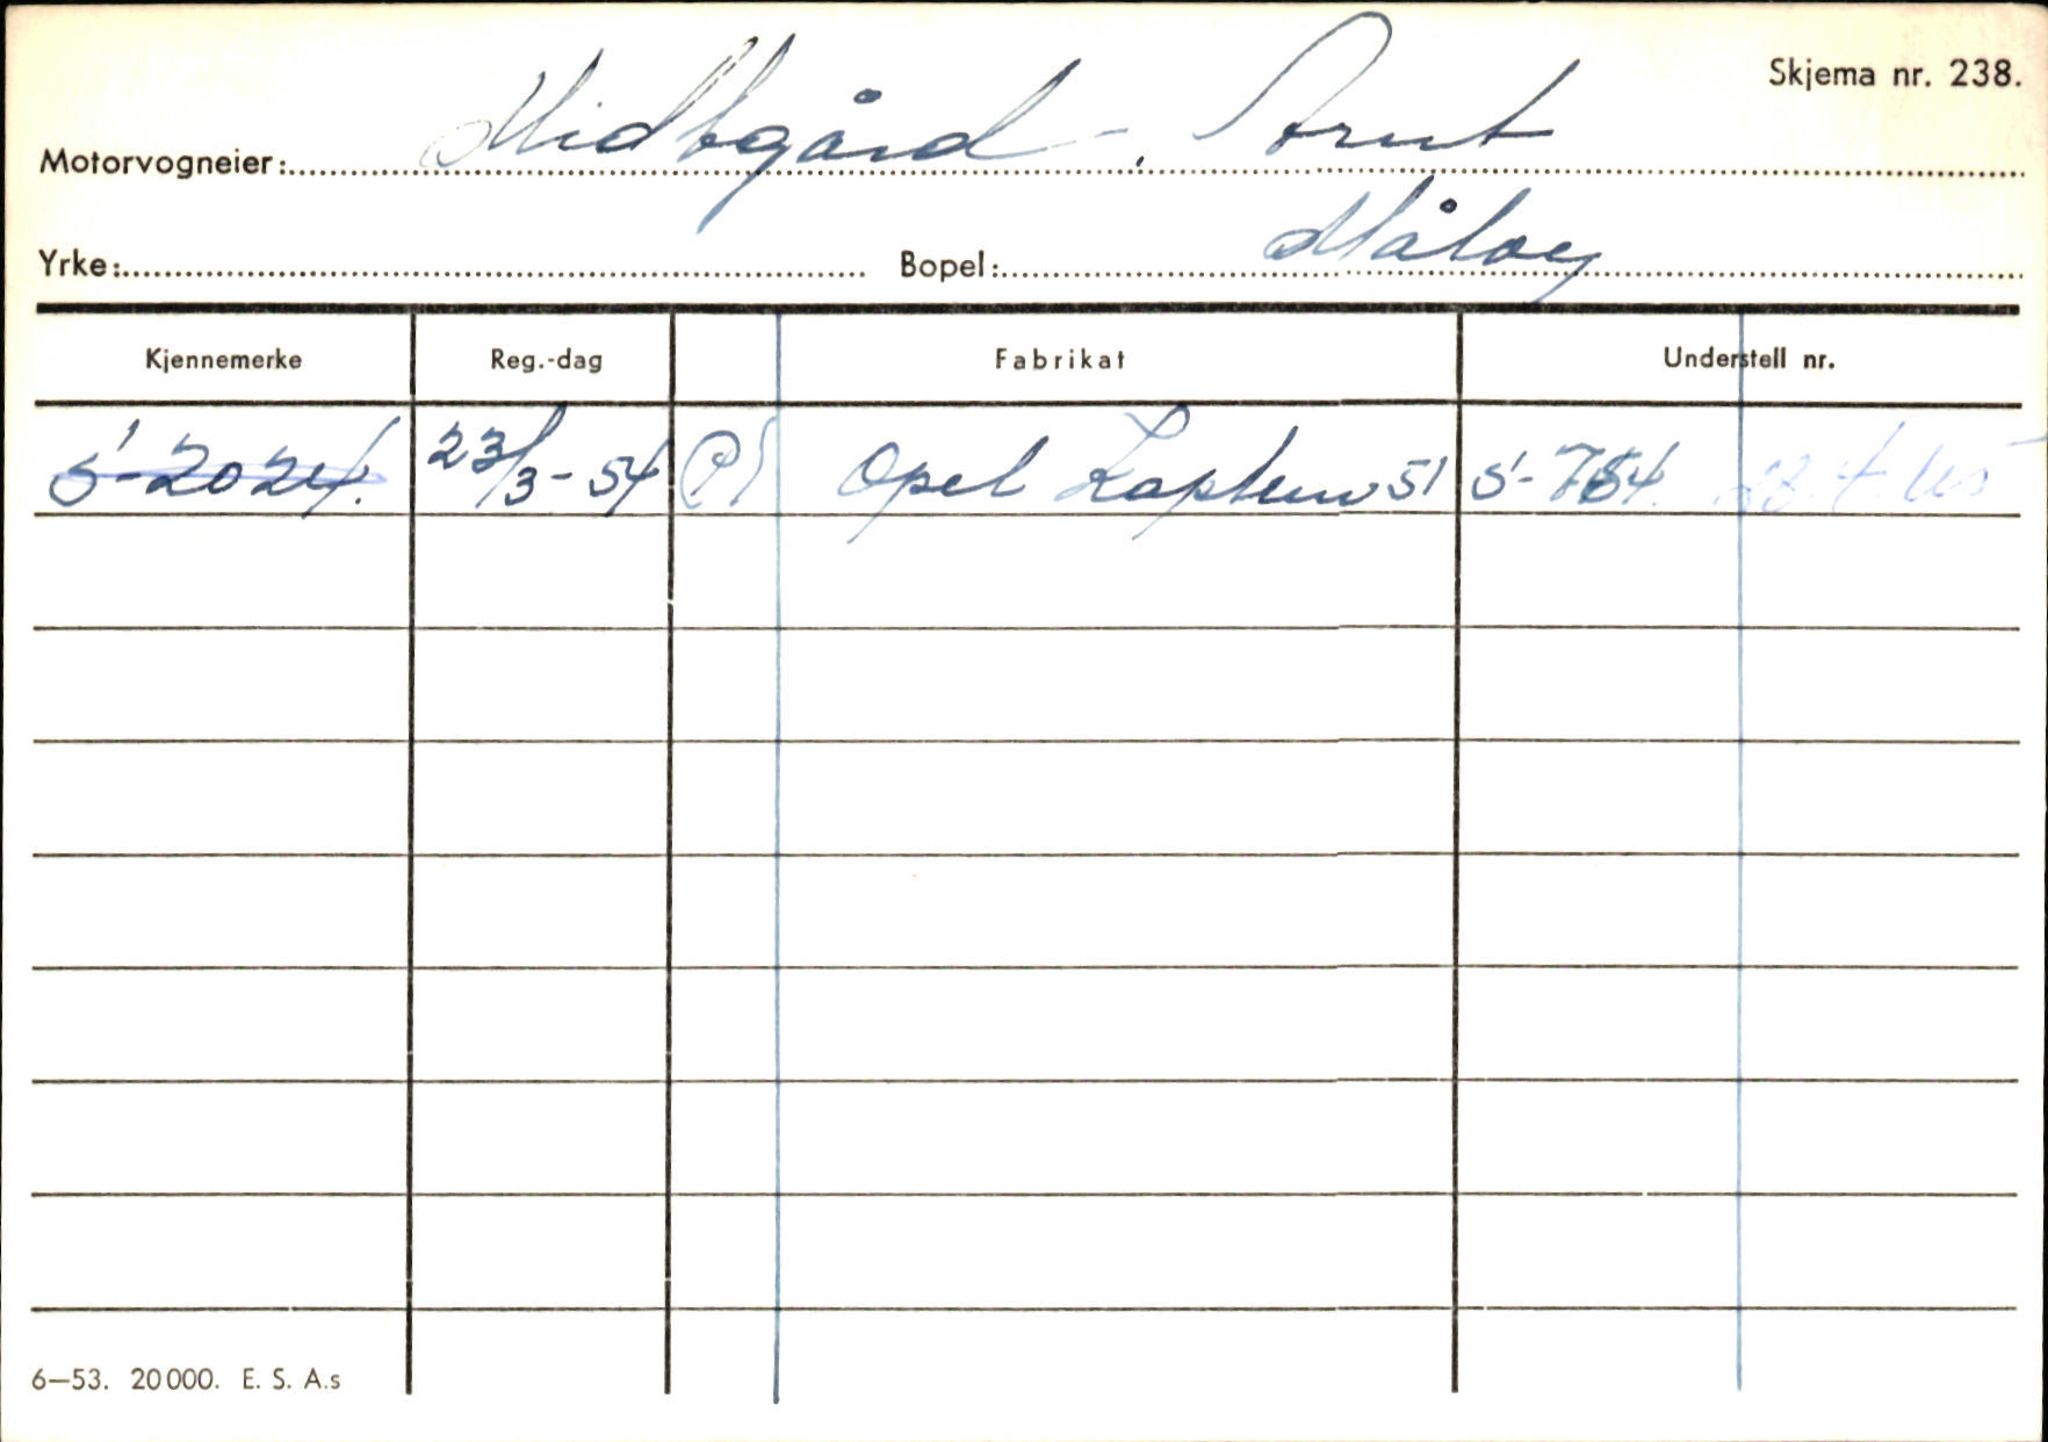 Skjema nr. 238.
Motorvogneier: Midtgård, Arnt
Yrke: Bopel: Måløy
Kjennemerke Reg.-dag Fabrikat Understell nr.
S-2024. 23/3-54 P Opel Kaptein 51 S-754
6—53. 20000. E. S. A.s